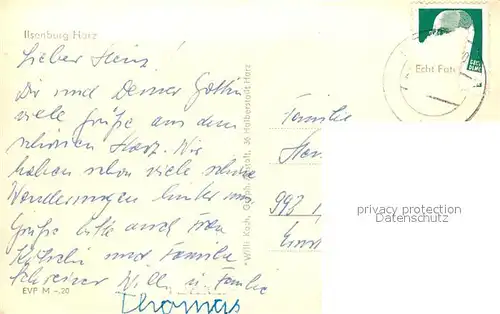 Ilsenburg Harz
Lieber Heinz!
Dir und Deiner Gattin
viele Grüße aus dem
schönen Harz. Wir
haben schon viele schöne
Wanderungen hinter uns
Grüße bitte auch Frau
und Familie
Schreiner Willy u. Familie
Thomas
EVP M -.20
Willi Koch, Graph. Anstalt, 36 Halberstadt Harz
Echt Foto
Familie
993
privacy protection
Datenschutz